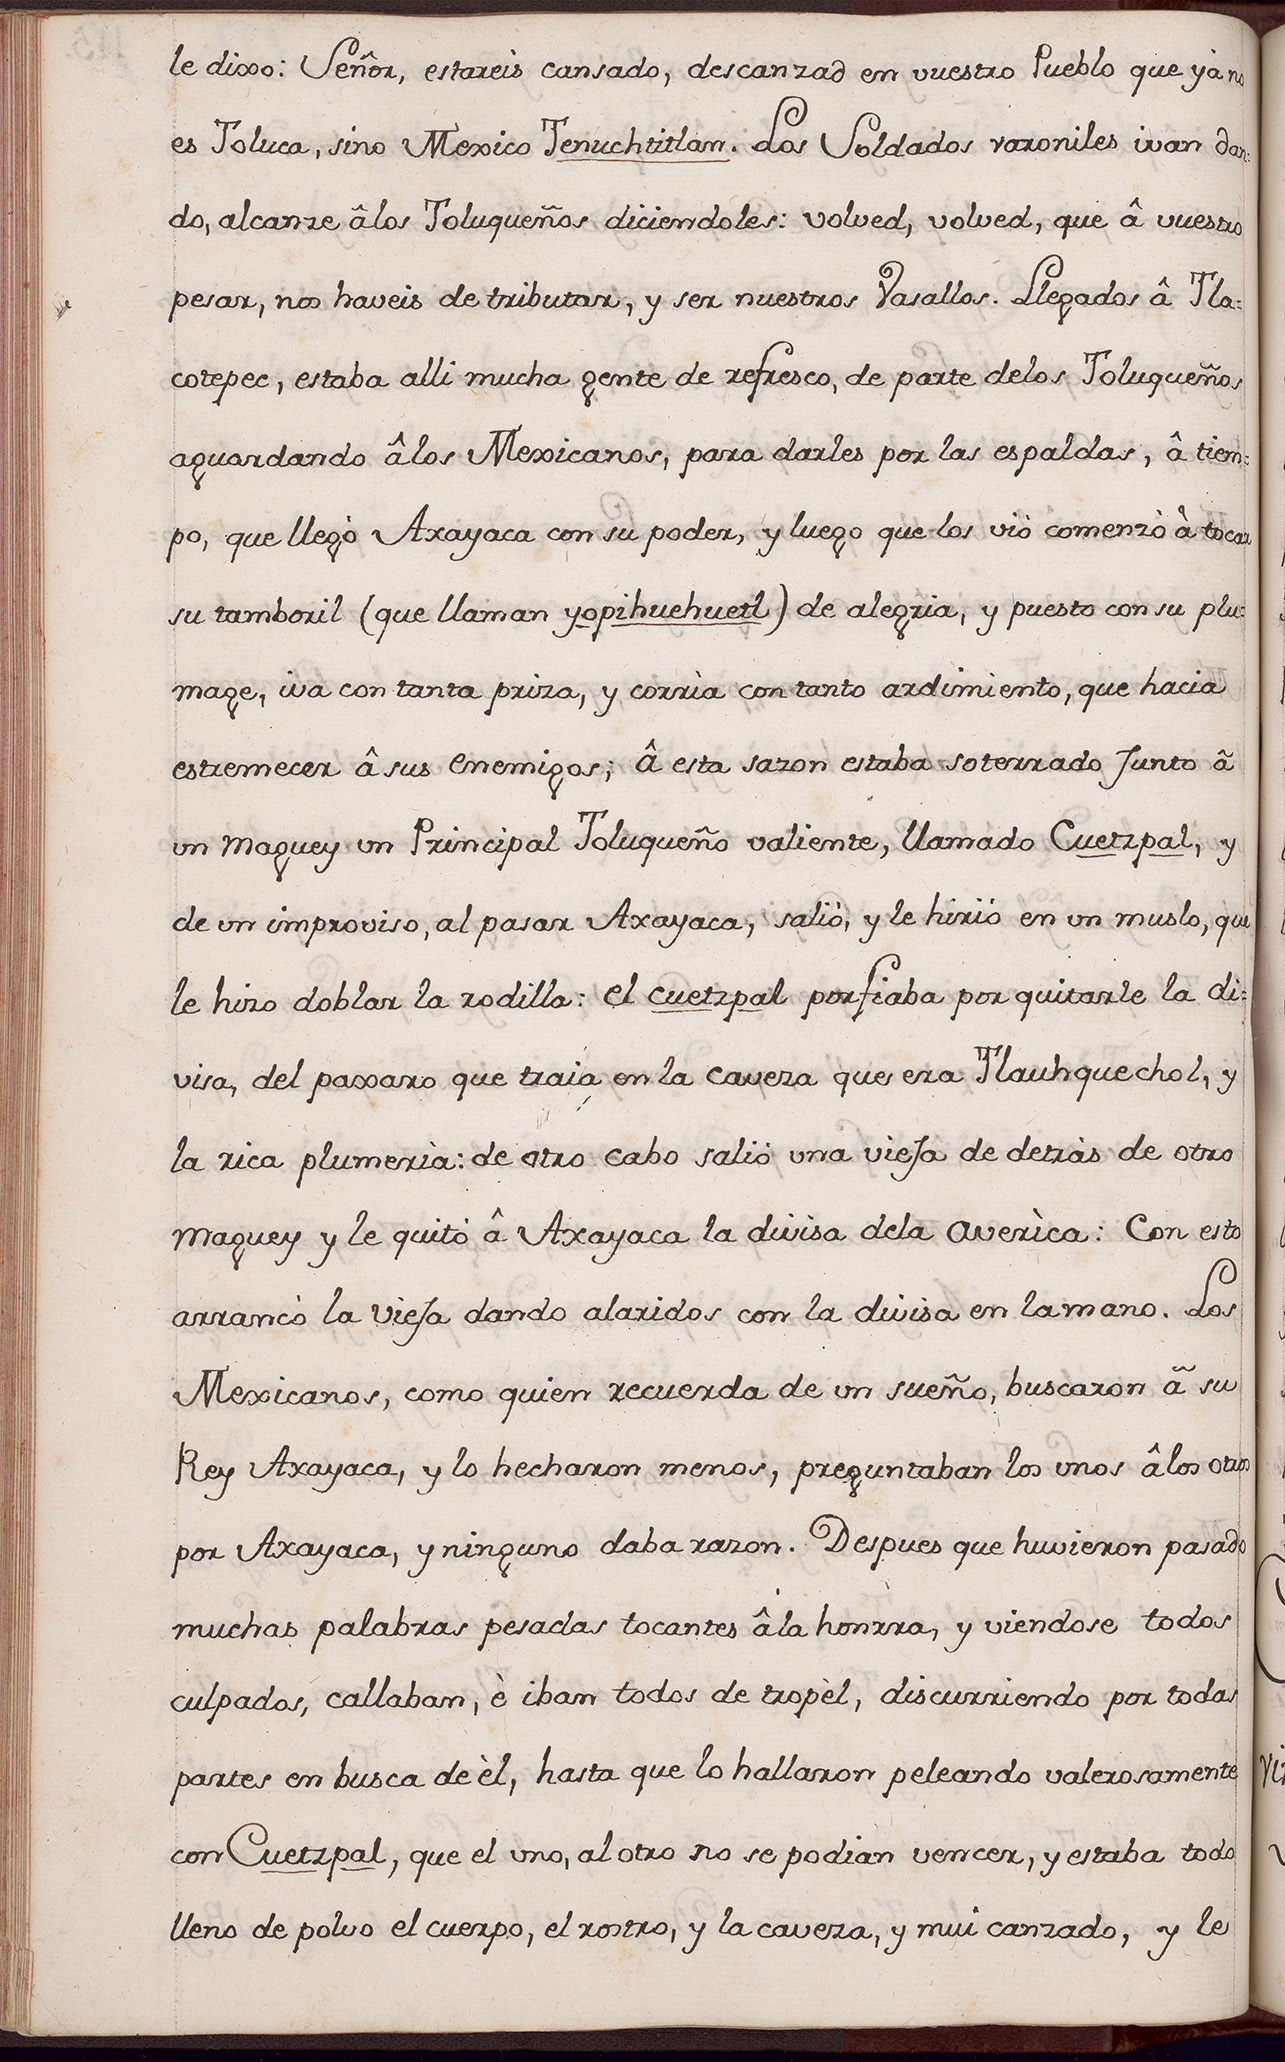 le dixo: Señor, estareis cansado, descanzad en vuestro Pueblo que yà no
es Toluca, sino Mexico Tenuchtitlan. Los Soldados varoniles ivan dan=
do, alcanze âlos Toluqueños diciendoles: volved, volved, que â vuestro
pesar, nos haveis de tributar, y ser nuestros Vasallos. Llegados â Tla=
cotepec, estaba alli mucha gente de refresco, de parte delos Toluqueños
aguardando âlos Mexicanos, para darles por las espaldas, â tiem=
po, que llegò Axayaca con su poder, y luego que los viò comenzò â tocar
su tamboril (que llaman yopihuehuetl) de alegria, y puesto con su plu=
mage, iva con tanta priza, y corrìa con tanto ardimiento, que hacia
estremecer â sus enemigos; â esta sazon estaba soterrado Junto ã
un maguey un Principal Toluqueño valiente, llamado Cuetzpal, y
de un improviso, al pasar Axayaca, saliò, y le hiriò en un muslo, que
le hizo doblar la rodilla: el cuetzpal porfiaba por quitarle la di=
visa, del paxaro que traia en la caveza que era Tlauhquechol, y
la rica plumerìa: de otro cabo saliò una vieJa de detràs de otro
maguey y le quitò â Axayaca la divisa dela averìca: Con esto
arrancò la vieJa dando alaridos con la divisa en lamano. Los
Mexicanos, como quien recuerda de un sueño, buscaron ã su
Rey Axayaca, y lo hecharon menos, preguntaban los unos âlos otros
por Axayaca, y ninguno daba razon. Despues que huvieron pasado
muchas palabras pesadas tocantes âla honrra, y viendose todos
culpados, callaban, è iban todos de tropèl, discurriendo por todas
partes en busca de èl, hasta que lo hallaron peleando valerosamente
con Cuetzpal, que el uno, al otro no se podian vencer, y estaba todo
lleno de polvo el cuerpo, el rostro, y la caveza, y mui canzado, y le